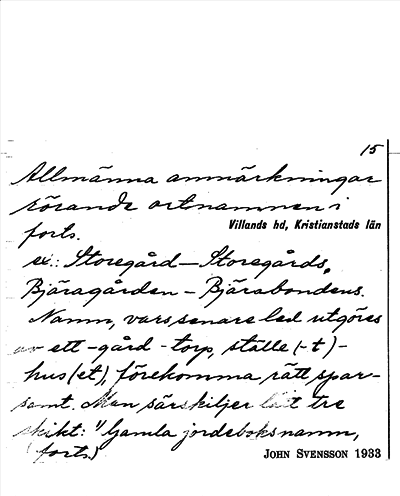 15
Allmänna anmärkningar
rörande ortnamnen i
Villands hd, Kristianstads län
forts.
ex.: Storegård — Storegårds,
Bjäragården – Bjärabondens.
Namn, vars senare led utgöres
av ett -gård -torp, ställe (-t) -
hus (et), förekomma rätt spar-
samt. Man särskiljer lätt tre
skikt: 1) Gamla jordeboksnamn,
(forts.)
JOHN SVENSSON 1933